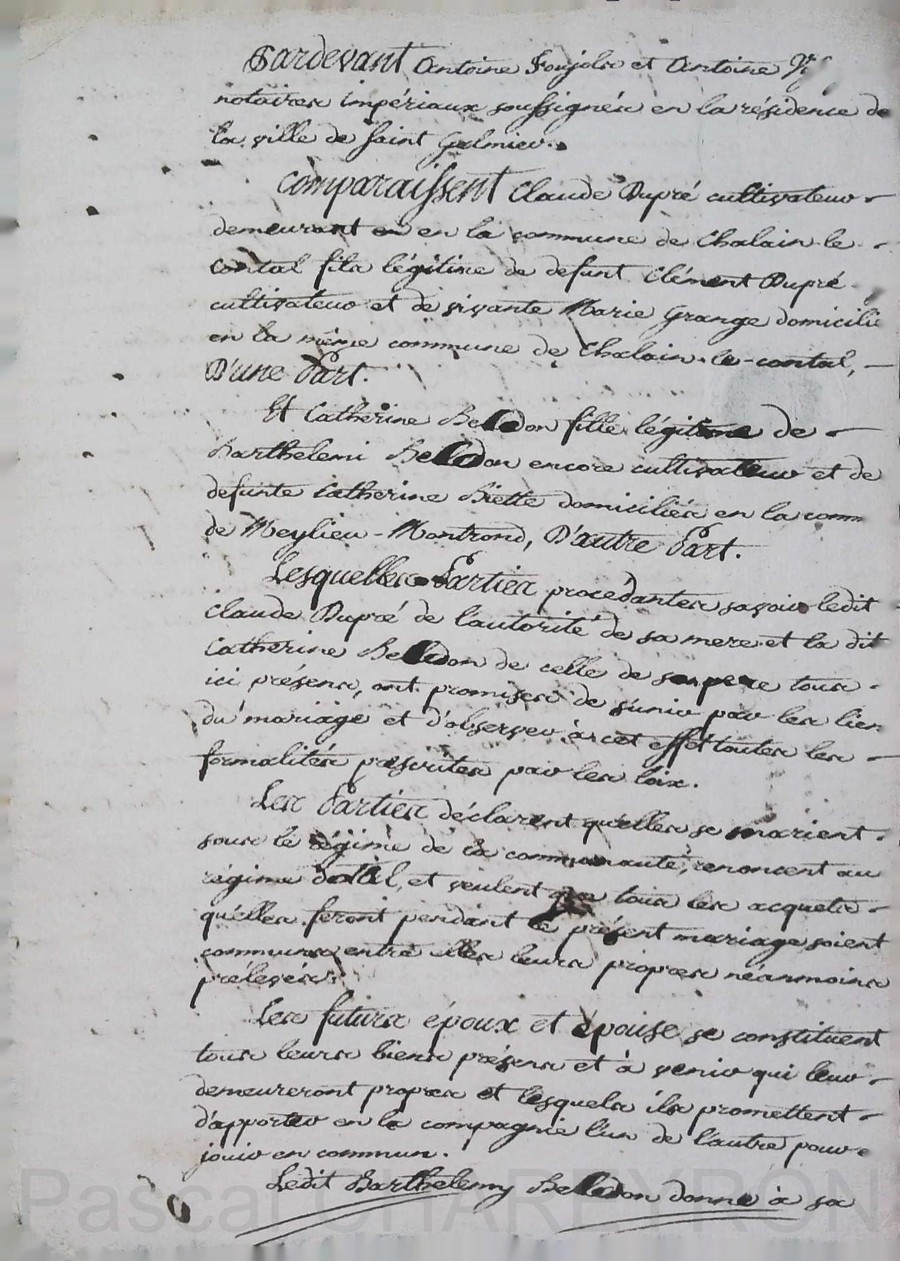 Pardevant Antoine Foujols et Antoine
notaires impériaux soussignés en la résidence de
la ville de Saint Galmier.
Comparaissent Claude Dupré cultivateur
demeurant en en la commune de Chalain-le-
comtal fils légitime de defunt Clément Dupré
cultivateur et de vivante Marie Grange domicilié
en la même commune de Chalain-le-comtal,
D'une Part.
Et Catherine Belledon fille légitime de
Barthelemi Belledon encore cultivateur et de
defunte Catherine Biette domiciliés en la comm
de Meylieu-Montrond, D'autre Part.
Lesquelles Parties procédantes savoir ledit
Claude Dupré de l'autorité de sa mere et la dit
Catherine Belledon de celle de son pere tous
ici présens, ont promises de s'unir par les lien
du mariage et d'observer à cet effet toutes les
formalités prescrites par les loix.
Les Parties déclarent qu'elles se marient
sous le régime de la communauté, renoncent au
régime dottel, et veulent que tous les acquets
qu'elles feront pendant le présent mariage soient
communs entre elles leurs propres néanmoins
prélevés.
Les futurs époux et épouse se constituent
tous leurs biens présens et à venir qui leur
demeureront propres et lesquels ils promettent
d'apporter en la compagnie l'un de l'autre pour
jouir en commun.
Ledit Barthelemy Belledon donne à sa
Pascal CHAREYRON